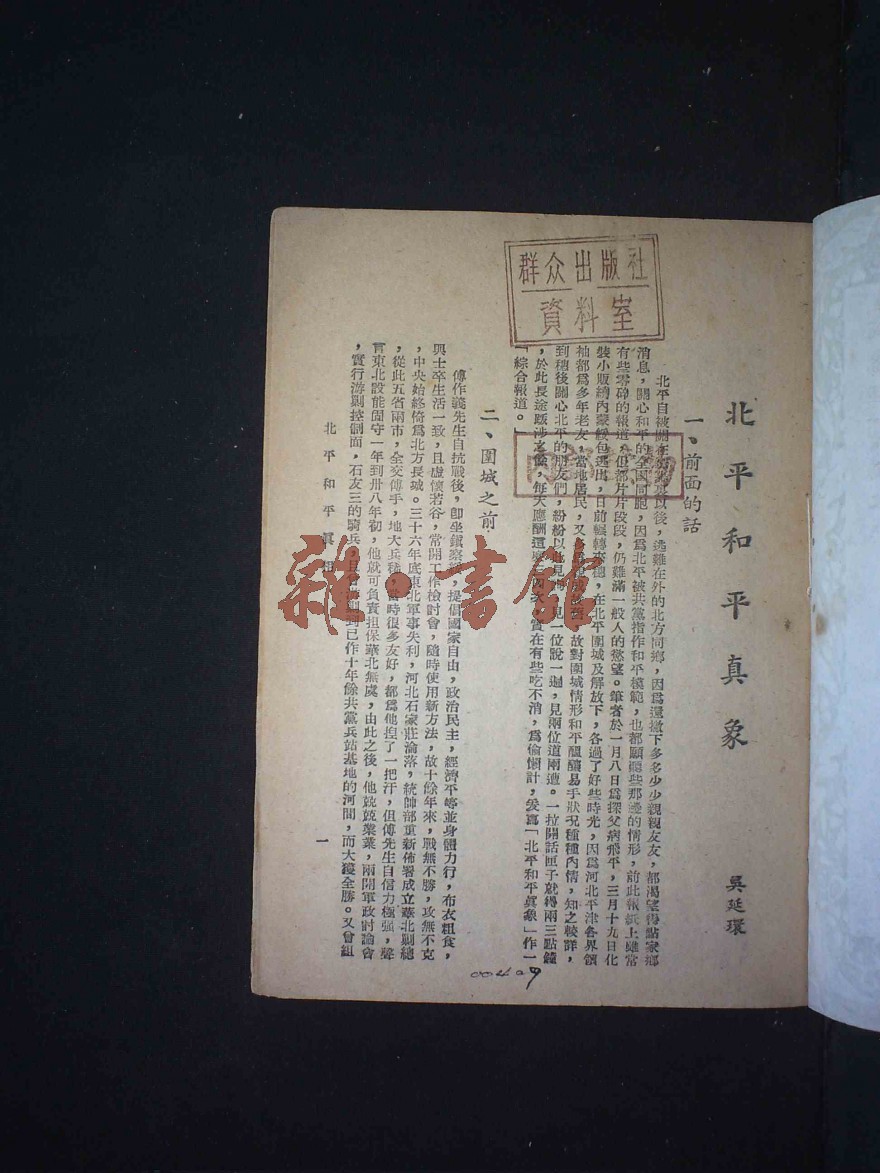 北平和平真象
吳延環
一、前面的話
北平自被關在
以後，逃難在外的北方同鄉，因爲還撇下多多少少親親友友，都渴望得點家鄉
消息，關心和平的全國同胞，因爲北平被共黨指作和平模範，也都願聽些那邊的情形，前此報紙上雖常
有些零碎的報道，但都片片段段，仍難滿一般人的慾望。筆者於一月八日爲探父病飛平，三月十九日化
裝小販繞內蒙綏包逃出，日前輾轉來穗，在北平圍城及解放下，各過了好些時光，因爲河北平津各界領
袖都爲多年老友，當地居民，又
故對圍城情形和平醞釀易手狀况種種內情，知之較詳，
到穗後關心北平的朋友們，紛紛以
見一位說一遍，見兩位道兩遭。一拉開話匣子就得兩三點鐘
，於此長途跋涉之餘，每天應酬這麼三兩次，實在有些吃不消，爲偷懶計，爰寫「北平和平眞象」作一
「綜合報道。」
二、圍城之前
傅作義先生自抗戰後，卽坐鎭察綏，提倡國家自由，政治民主，經濟平等並身體力行，布衣粗食，
與士卒生活一致，且虛懷若谷，常開工作檢討會，隨時使用新方法，故十餘年來，戰無不勝，攻無不克
，中央始終倚爲北方長城。三十六年底東北軍事失利，河北石家莊淪落，統帥部重新佈署成立華北剿總
，從此五省兩市，全交傅手，地大兵
，當時很多友好，都爲他揑了一把汗，但傅先生自信力極强，聲
言東北設能固守一年到卅八年初，他就可負責担保華北無虞，由此之後，他兢兢業業，兩開軍政討論會
，實行游剿控制面，石友三的騎兵，且曾游剿到已作十年餘共黨兵站基地的河間，而大獲全勝。又曾組
北平和平眞相
一
群众出版社
資料室
00409
雜·書館